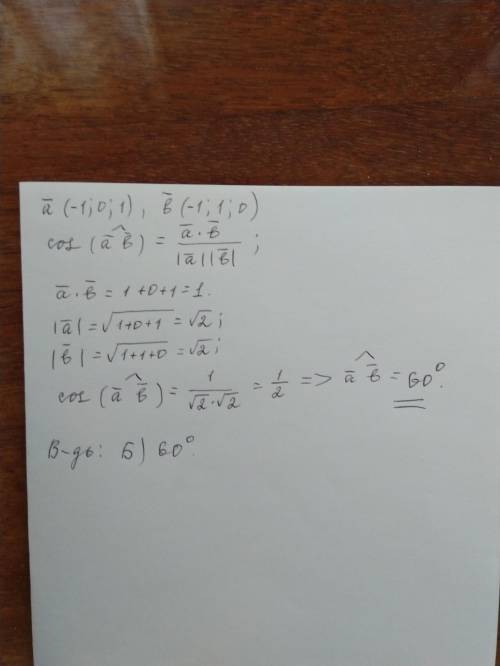 a̅ (-1; 0; 1), b̅ (-1; 1; 0)
cos (a̅ ^ b̅) = a̅ · b̅ / |a̅| |b̅| ;
a̅ · b̅ = 1 + 0 + 1 = 1.
|a̅| = √(1+0+1) = √2 ;
|b̅| = √(1+1+0) = √2 ;
cos (a̅ ^ b̅) = 1 / √2·√2 = 1/2 => a̅ ^ b̅ = 60°.
В-дь: Б) 60°.